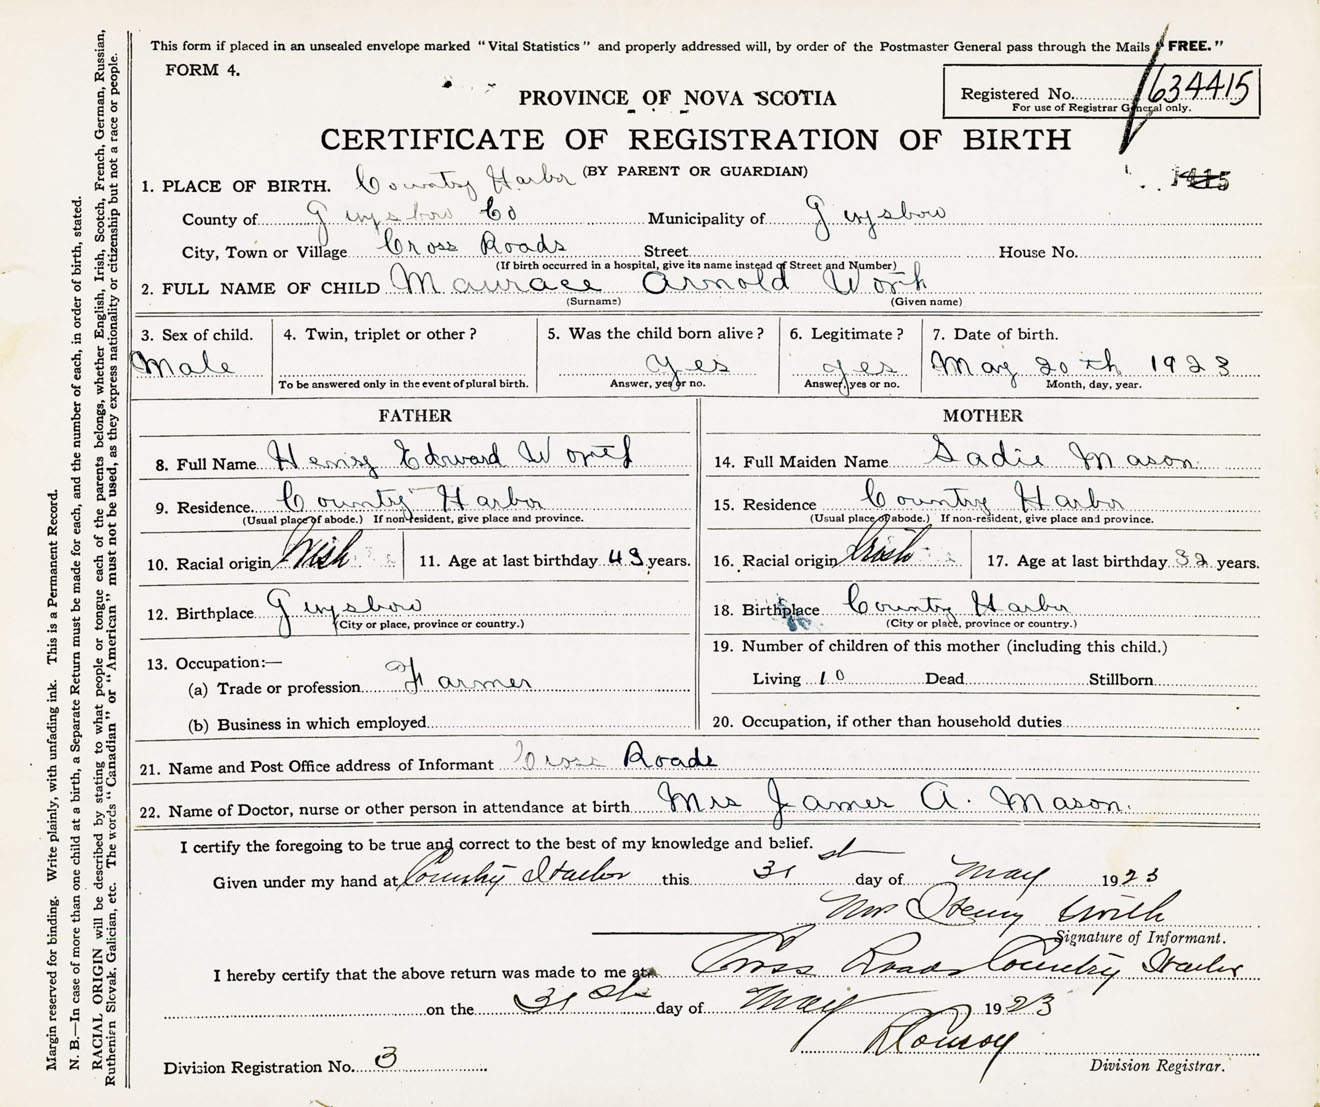 This form if placed in an unsealed envelope marked "Vital Statistics" and properly addressed will, by order of the Postmaster General pass through the Mails "FREE."
FORM 4.
Registered No. 634415
For use of Registrar General only.
PROVINCE OF NOVA SCOTIA
CERTIFICATE OF REGISTRATION OF BIRTH
(BY PARENT OR GUARDIAN)
1415
1. PLACE OF BIRTH. Country Harbor
County of Guysboro Co Municipality of Guysboro
City, Town or Village Cross Roads Street House No.
(If birth occurred in a hospital, give its name instead of Street and Number)
2. FULL NAME OF CHILD Maurace Arnold Worth
(Surname) (Given name)
3. Sex of child. 4. Twin, triplet or other? 5. Was the child born alive? 6. Legitimate? 7. Date of birth.
Male yes yes May 20th 1923
To be answered only in the event of plural birth. Answer, yes or no. Answer, yes or no. Month, day, year.
FATHER MOTHER
8. Full Name Henry Edward Worth 14. Full Maiden Name Sadie Mason
9. Residence. Country Harbor 15. Residence Country Harbor
(Usual place of abode.) If non-resident, give place and province. (Usual place of abode.) If non-resident, give place and province.
10. Racial origin Irish 11. Age at last birthday 43 years. 16. Racial origin Irish 17. Age at last birthday 32 years.
12. Birthplace Guysboro 18. Birthplace Country Harbor
(City or place, province or country.) (City or place, province or country.)
13. Occupation:— 19. Number of children of this mother (including this child.)
(a) Trade or profession Farmer Living 10 Dead Stillborn
(b) Business in which employed 20. Occupation, if other than household duties
21. Name and Post Office address of Informant Cross Roads
22. Name of Doctor, nurse or other person in attendance at birth Mrs James A. Mason.
I certify the foregoing to be true and correct to the best of my knowledge and belief.
Given under my hand at Country Harbor this 31st day of May 1923
Mrs Henry Worth
Signature of Informant.
I hereby certify that the above return was made to me at Cross Roads Country Harbor
on the 31st day of May 1923
Conroy
Division Registration No. 3 Division Registrar.
Margin reserved for binding. Write plainly, with unfading ink. This is a Permanent Record.
N. B.—In case of more than one child at a birth, a Separate Return must be made for each, and the number of each, in order of birth, stated.
RACIAL ORIGIN will be described by stating to what people or tongue each of the parents belongs, whether English, Irish, Scotch, French, German, Russian,
Ruthenian Slovak, Galician, etc. The words "Canadian" or "American" must not be used, as they express nationality or citizenship but not a race or people.